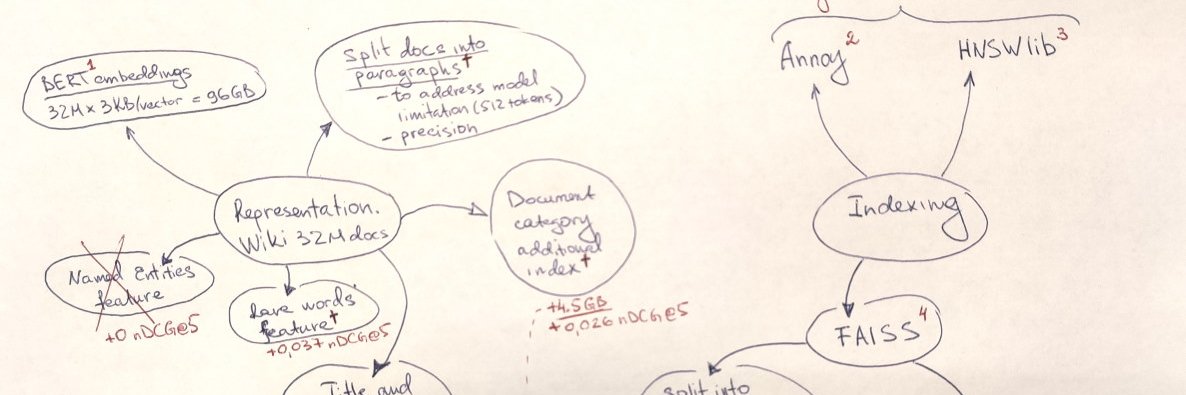 BERT¹ embeddings
32M x 3KB/vector = 96GB
Split docs into
paragraphs†
- to address model
limitation (512 tokens)
- precision
Annoy²
HNSWlib³
Representation.
Wiki 32M docs
Document
category
additional
index†
- +4.5GB
+0,026 nDCG@5
Indexing
Named Entities
feature
+0 nDCG@5
Rare words
feature†
+0,037 nDCG@5
FAISS⁴
Title and
Split into